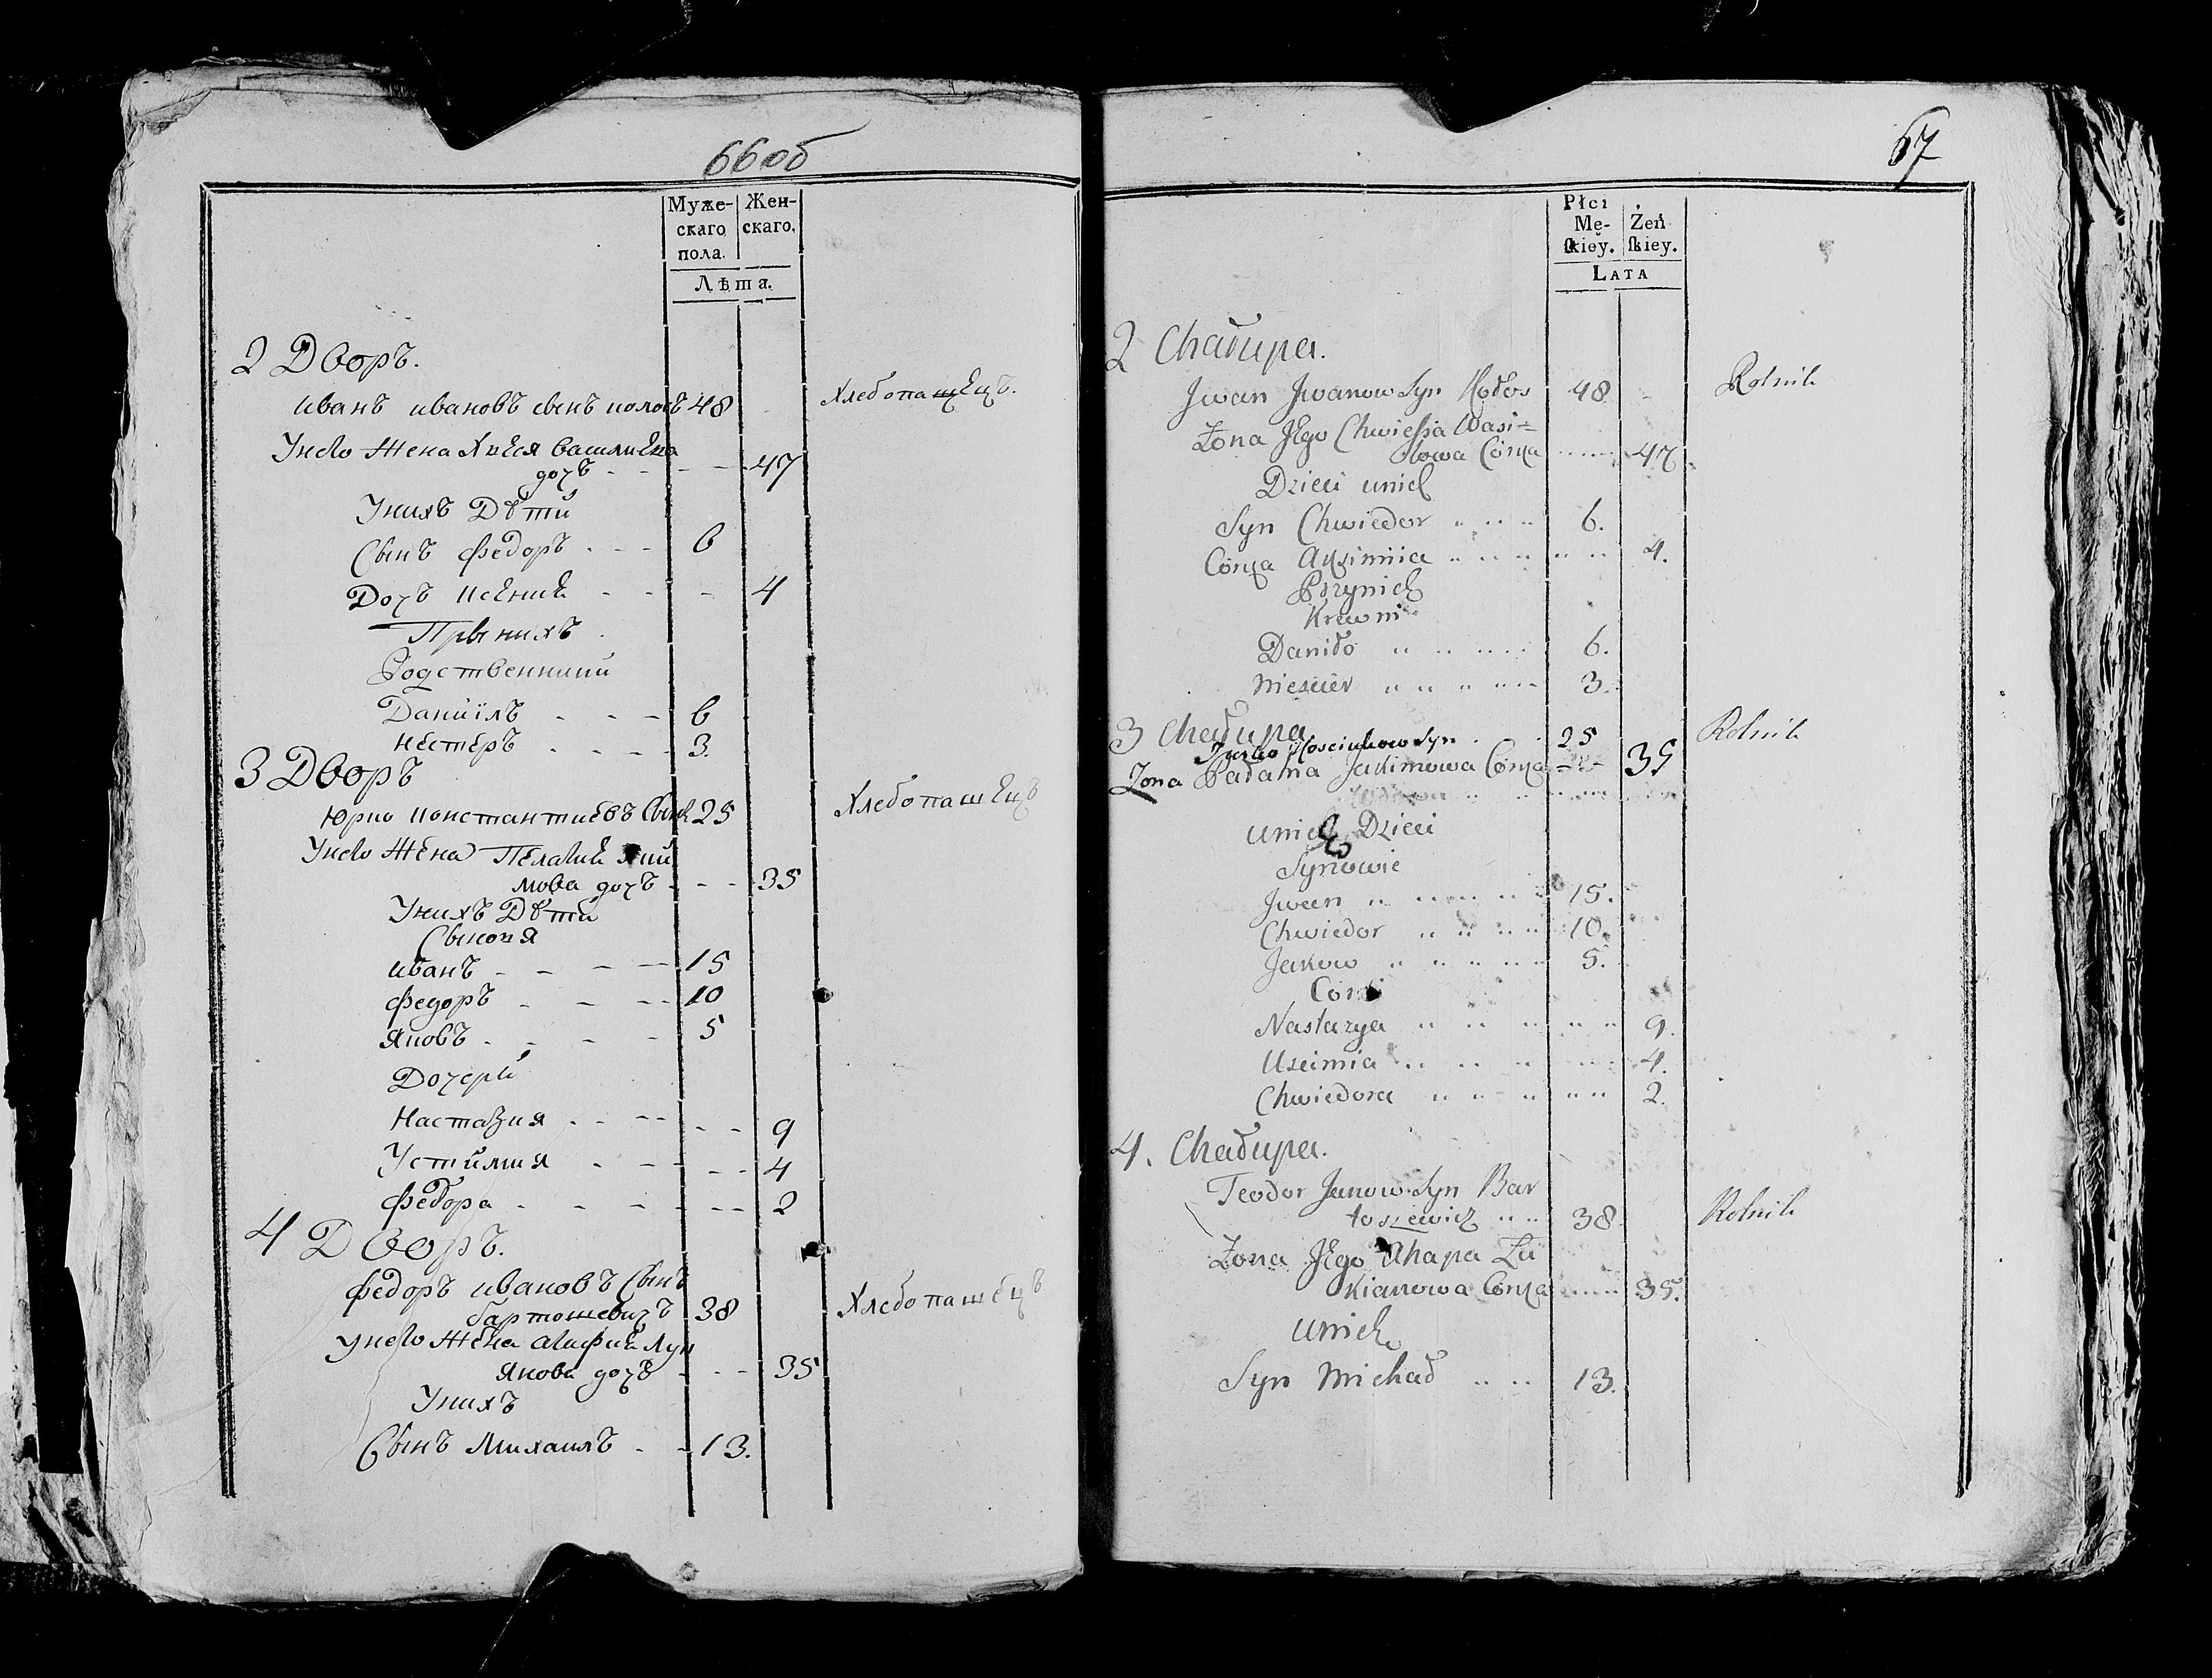 66об
Муже-
скаго
пола.
Жен-
скаго.
Лѣта.
2 Дворъ.
иванъ ивановъ сынъ 48 Хлебопашецъ.
Унево Жена васил
дочъ - - - - 47
Унихъ Дѣти
Сынъ федоръ - - - 6
Дочъ - - - 4
При нихъ
Родственники
Даниілъ - - - 6
нестеръ - - - - 3.
3 Дворъ
Юрко константиевъ Сынъ 25 Хлебопашецъ
Унево Жена Пелагия яки
мова дочъ - - - 35
Унихъ Дѣти
Сыновя
иванъ - - - - 15
федоръ - - - - 10
яковъ - - - - 5
Дочери
Настазия - - - - - - 9
Устимия - - - - - 4
федора - - - - - - 2
4 Дворъ.
федоръ ивановъ Сынъ
бартошевичъ 38 Хлебопашецъ
унево Жена Лук
янова дочъ - - - 35
Унихъ
Сынъ Михаилъ - - 13.
67
Płci
Mę-
ſkiey.
Żeń
ſkiey.
LATA
2 Chałupa.
Jwan Jwanow Syn Kołos 48 Rolnik
Zona Jego Chwieſia Wasi=
lowa Córka 47
Dzieci unich
Syn Chwiedor 6.
Córka Axzimiia 4.
Przynich
Krewni
Daniło 6.
Niescier 3.
3 Chałupa Rolnik
Jurko Kosciukow Syn 25
Zona Pałaha Jakimowa Córka 35
unich Dzieci
Synowie
Jwan 15.
Chwiedor 10.
Jakow 5.
Córki
Nastazya 9.
Uscimia 4.
Chwiedora 2.
4. Chałupa.
Teodor Janow Syn Bar
toszewicz 38 Rolnik
Zona Jego Ahapa Łu
kianowa Córka 35.
unich
Syn Michał 13.